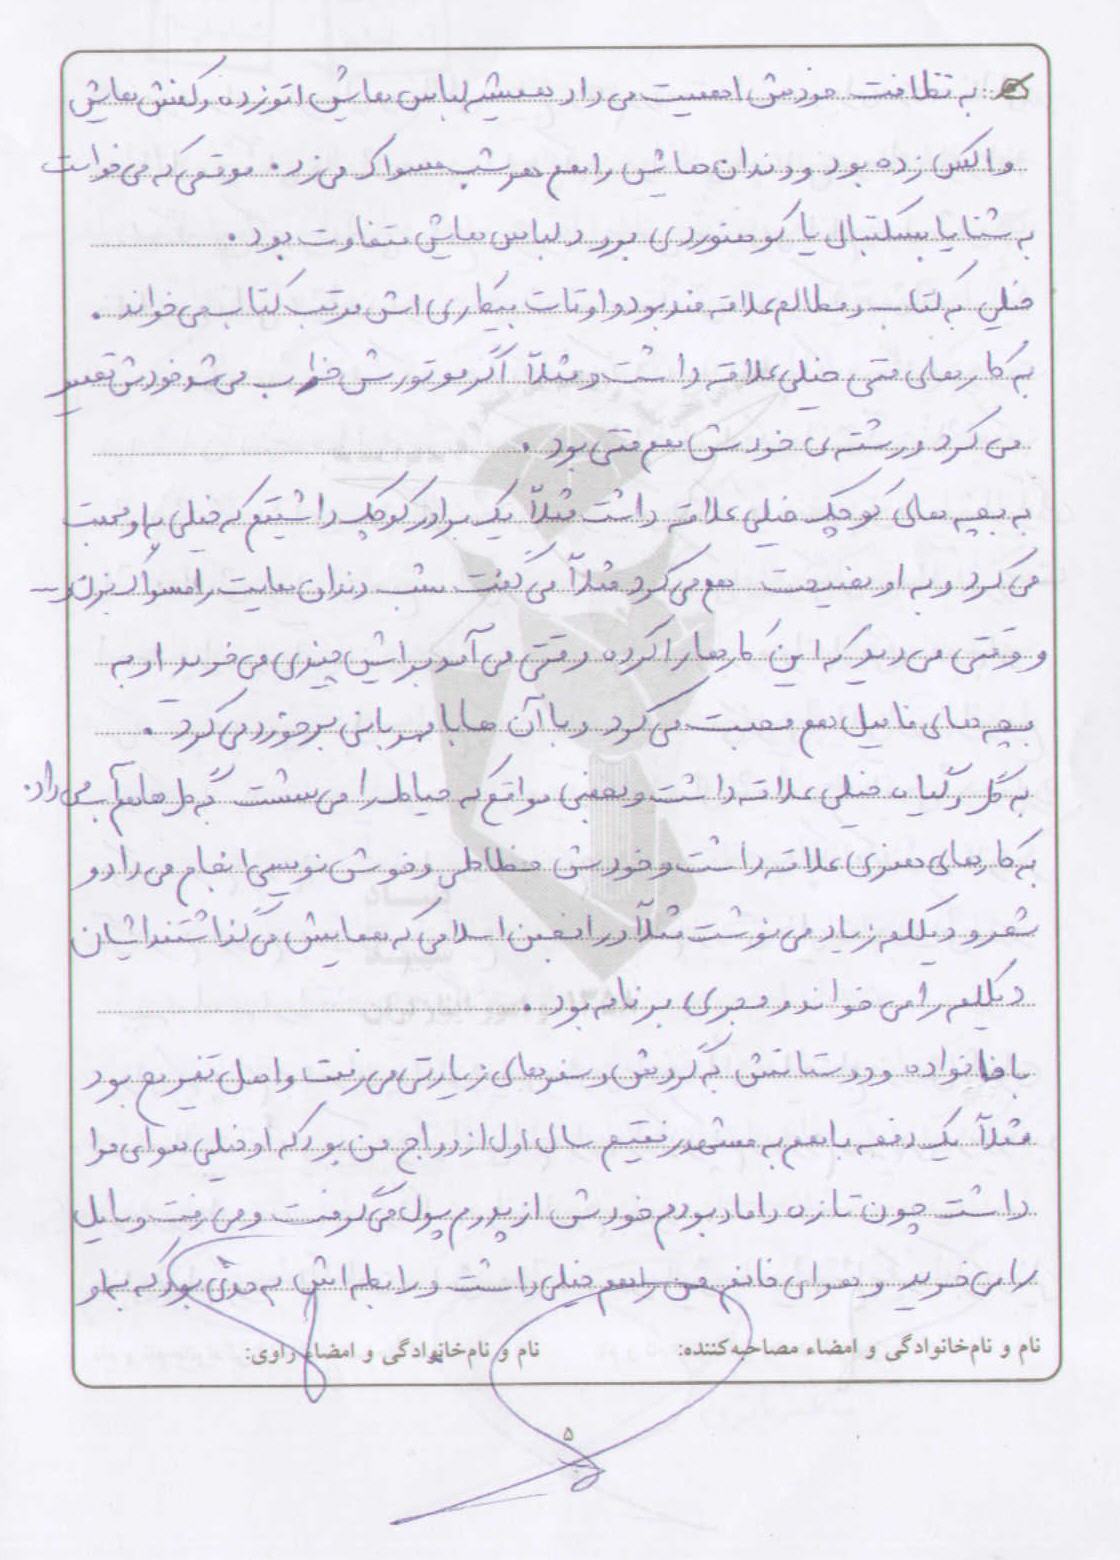 به نظافت خودش اهمیت می داد همیشه لباس هایش اتو زده و کفش هایش
واکس زده بود و دندان هایش را هم هر شب مسواک می زد. موقعی که می خواست
به شنا یا بسکتبال یا کوهنوردی برود لباس هایش متفاوت بود.
خیلی به کتاب و مطالعه علاقه مند بود و اوقات بیکاری اش مرتب کتاب می خواند.
به کارهای فنی خیلی علاقه داشت و مثلاً اگر موتورش خراب می شد خودش تعمیر
می کرد و رشته ی خودش هم فنی بود.
به بچه های کوچک خیلی علاقه داشت مثلاً یک برادر کوچک داشتیم که خیلی به او محبت
می کرد و به او نصیحت هم می کرد مثلاً می گفت شب دندان هایت را مسواک بزن و ...
و وقتی می دید که این کارها را کرده وقتی می آمد برایش چیزی می خرید او به
بچه های فامیل هم محبت می کرد و با آن ها با مهربانی برخورد می کرد.
به گل و گیاه خیلی علاقه داشت و بعضی مواقع که حیاط را می شست به گل ها هم آب می داد.
به کارهای هنری علاقه داشت و خودش خطاطی و خوش نویسی انجام می داد و
شعر و دیکلمه زیاد می نوشت مثلاً در انجمن اسلامی که همایش می گذاشتند ایشان
دیکلمه را می خواند و مجری برنامه بود.
با خانواده و دوستانش به گردش و سفرهای زیارتی می رفت و اهل تفریح بود
مثلاً یک دفعه با هم به مشهد رفتیم سال اول ازدواج من بود که او خیلی هوای مرا
داشت چون تازه داماد بودم خودش از پدرم پول می گرفت و می رفت وسایل
را می خرید و هوای خانم من را هم خیلی داشت و رابطه اش به حدی بود که به او
نام و نام خانوادگی و امضاء مصاحبه کننده: نام و نام خانوادگی و امضاء راوی:
۵